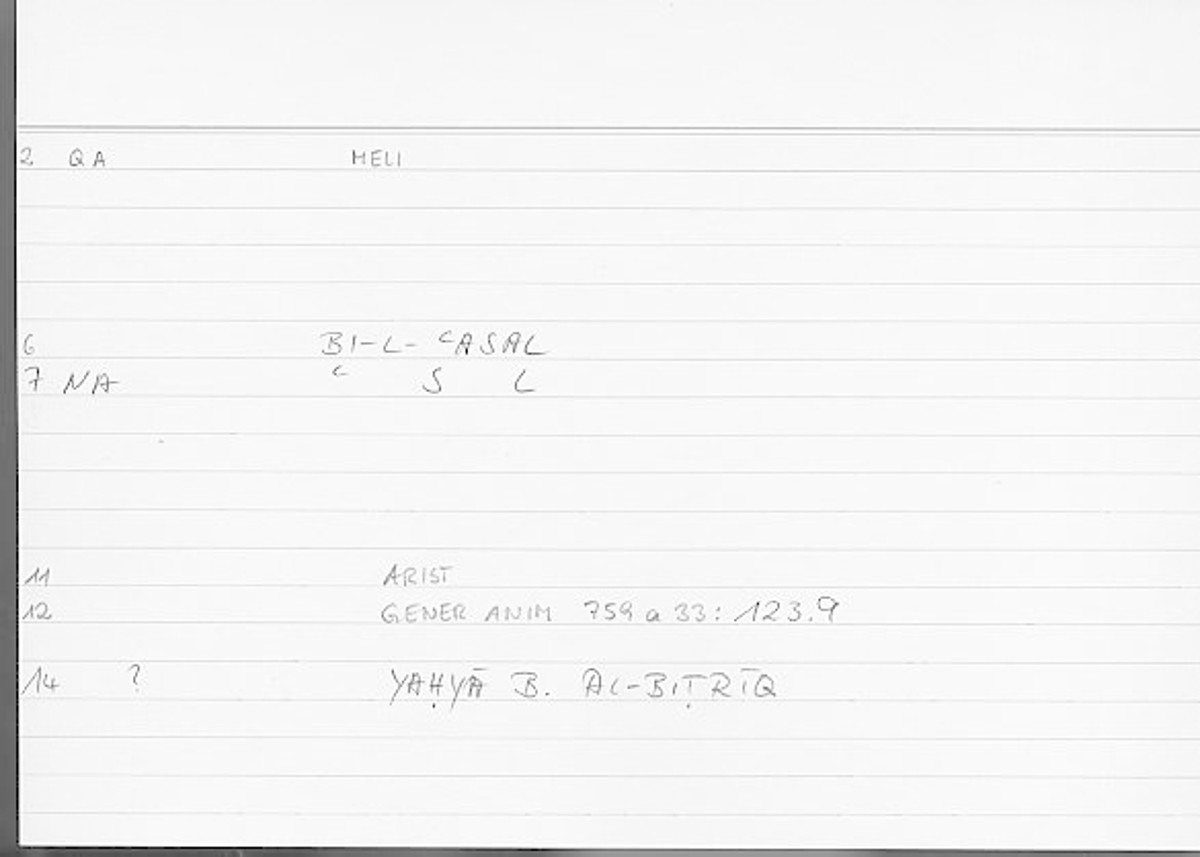 2 QA MELI
6 BI-L-ʿASAL
7 NA ʿ S L
11 ARIST
12 GENER ANIM 759 a 33: 123.9
14 ? YAḤYĀ B. AL-BIṬRĪQ